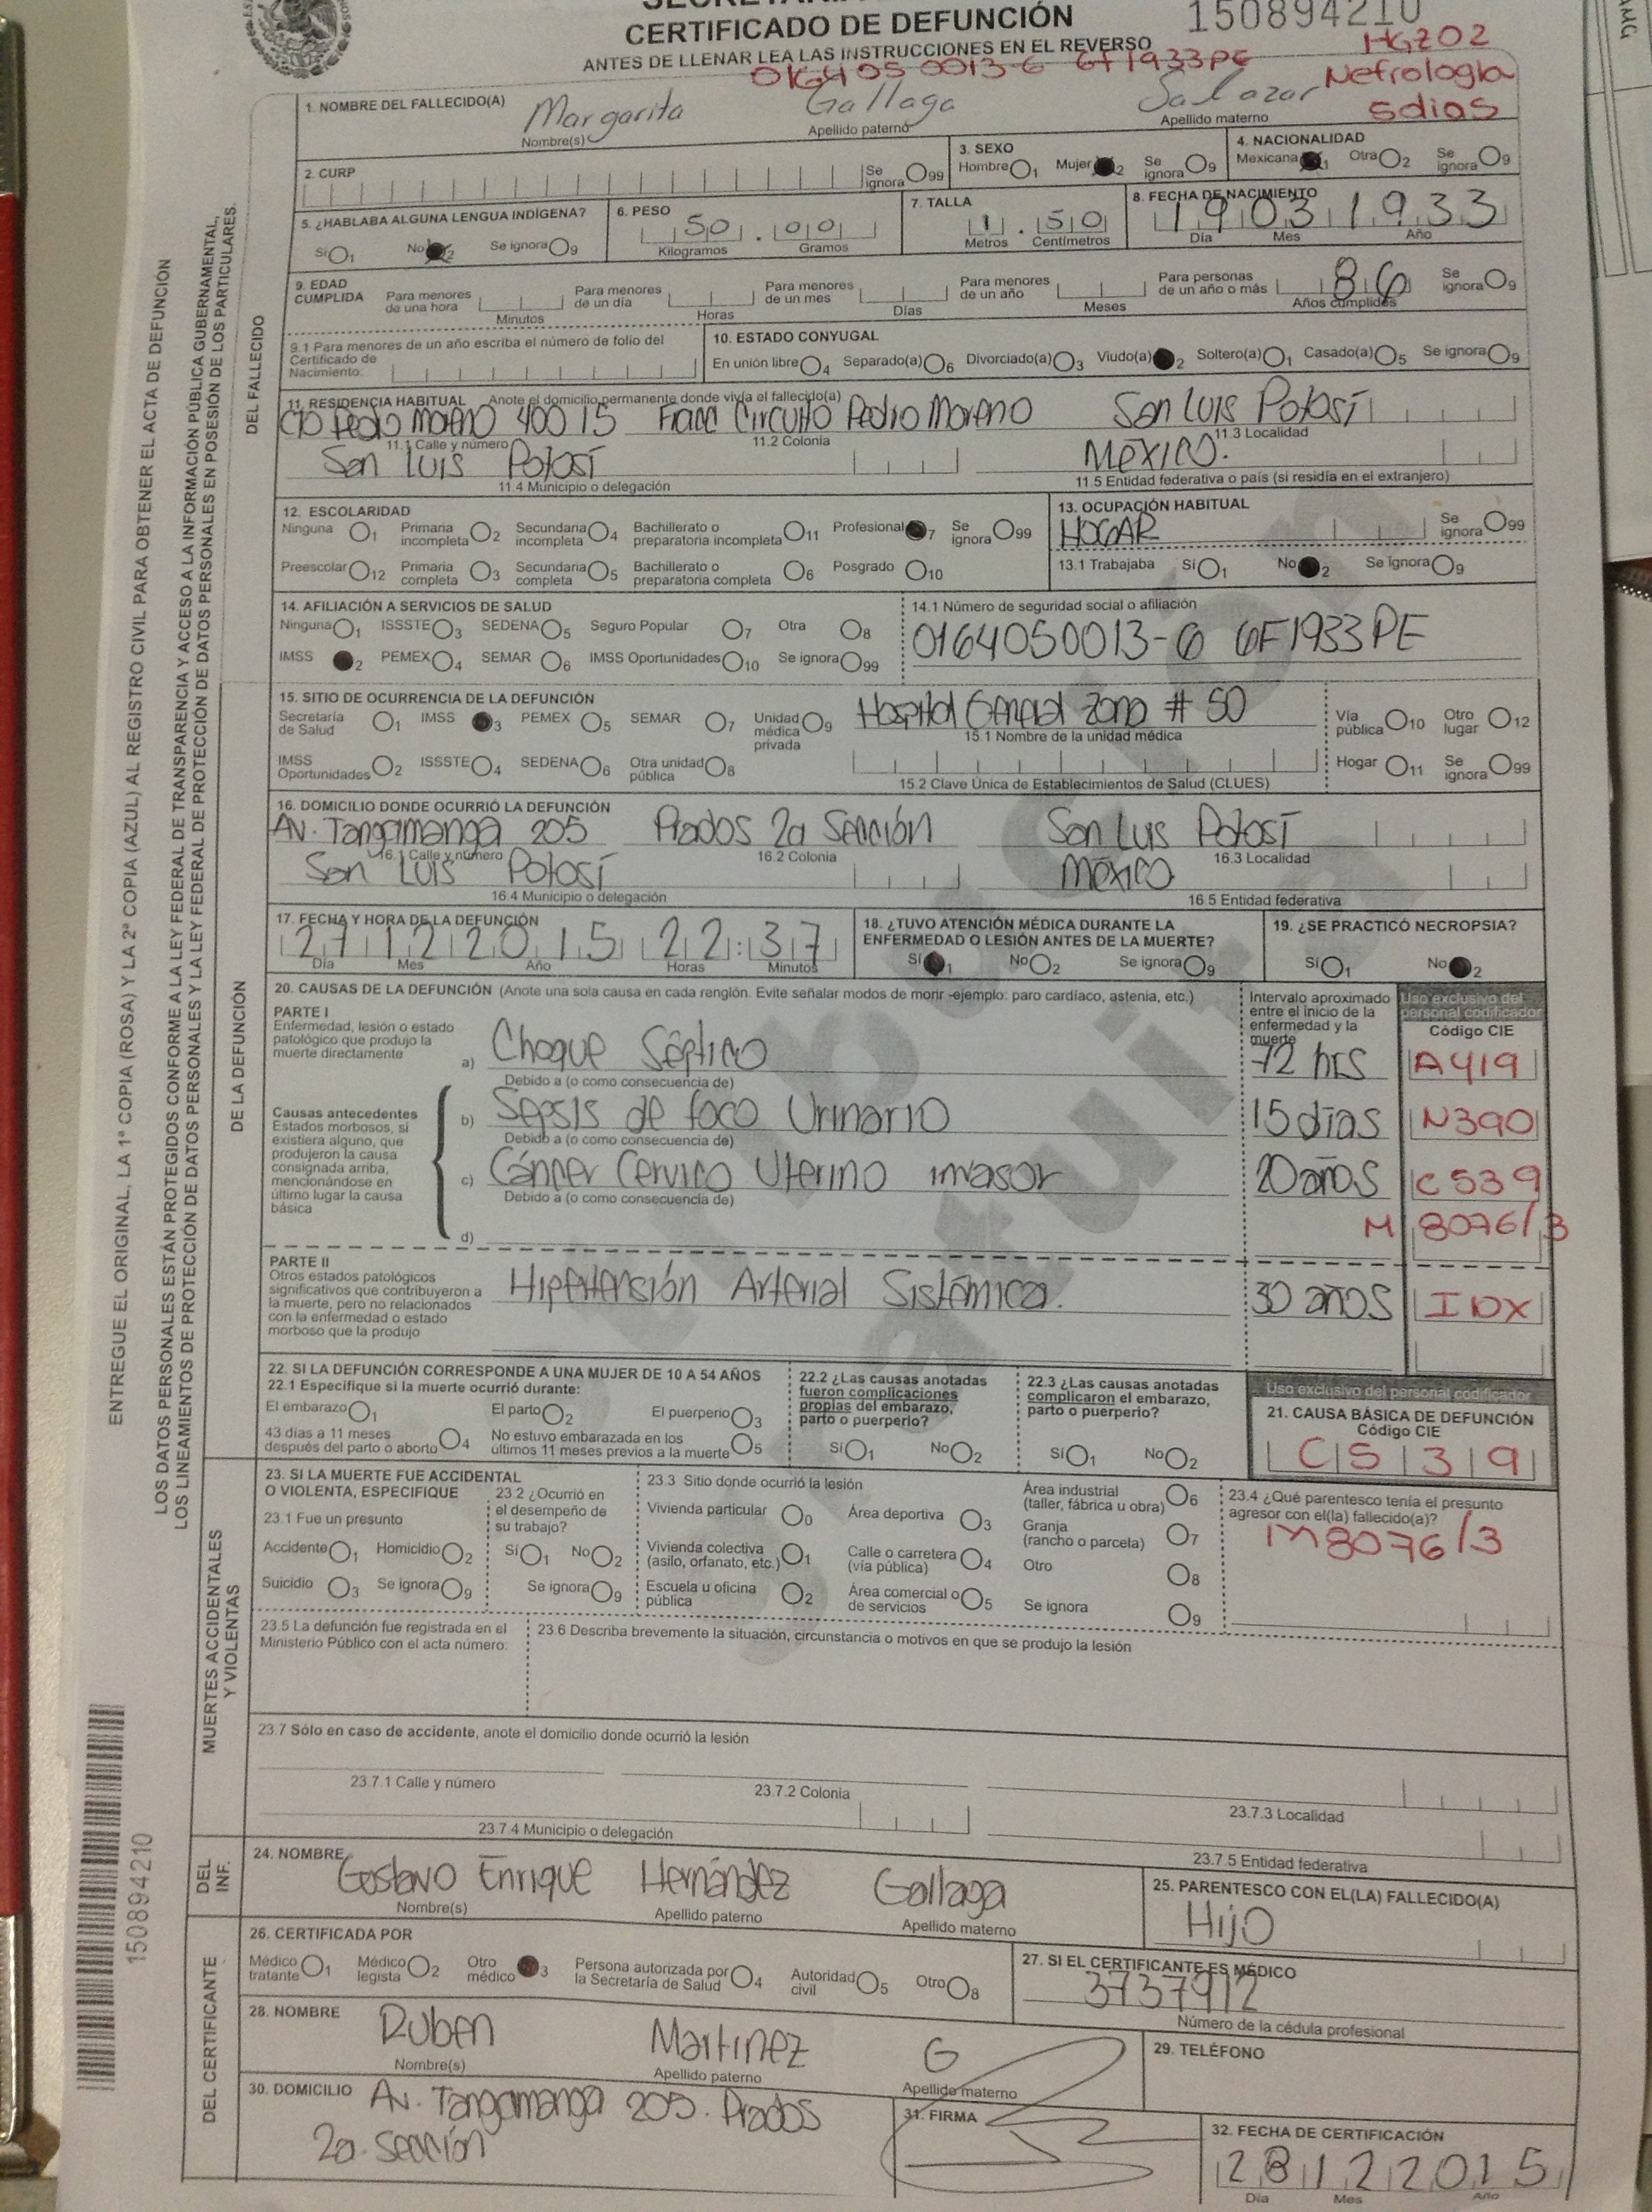 CERTIFICADO DE DEFUNCIÓN
150894210
ANTES DE LLENAR LEA LAS INSTRUCCIONES EN EL REVERSO
HGZ02
Nefrología
5días
1. NOMBRE DEL FALLECIDO(A) Margarita Gallaga Salazar
Nombre(s) Apellido paterno Apellido materno
2. CURP Se ignora 99
3. SEXO Hombre 1 Mujer 2 Se ignora 9
4. NACIONALIDAD Mexicana 1 Otra 2 Se ignora 9
5. ¿HABLABA ALGUNA LENGUA INDÍGENA? Sí 1 No 2 Se ignora 9
6. PESO 50 . 00 Kilogramos Gramos
7. TALLA 1 . 50 Metros Centímetros
8. FECHA DE NACIMIENTO 19 03 1933 Día Mes Año
9. EDAD CUMPLIDA Para menores de una hora Minutos Para menores de un día Horas Para menores de un mes Días Para menores de un año Meses Para personas de un año o más 86 Años cumplidos Se ignora 9
9.1 Para menores de un año escriba el número de folio del Certificado de Nacimiento:
10. ESTADO CONYUGAL
En unión libre 4 Separado(a) 6 Divorciado(a) 3 Viudo(a) 2 Soltero(a) 1 Casado(a) 5 Se ignora 9
11. RESIDENCIA HABITUAL Anote el domicilio permanente donde vivía el fallecido(a)
Cto Pedro Moreno 400 15 Fracc Circuito Pedro Moreno San Luis Potosí
11.1 Calle y número 11.2 Colonia 11.3 Localidad
San Luis Potosí México.
11.4 Municipio o delegación 11.5 Entidad federativa o país (si residía en el extranjero)
12. ESCOLARIDAD
Ninguna 1 Primaria incompleta 2 Secundaria incompleta 4 Bachillerato o preparatoria incompleta 11 Profesional 7 Se ignora 99
Preescolar 12 Primaria completa 3 Secundaria completa 5 Bachillerato o preparatoria completa 6 Posgrado 10
13. OCUPACIÓN HABITUAL
HOGAR Se ignora 99
13.1 Trabajaba Sí 1 No 2 Se ignora 9
14. AFILIACIÓN A SERVICIOS DE SALUD
Ninguna 1 ISSSTE 3 SEDENA 5 Seguro Popular 7 Otra 8
IMSS 2 PEMEX 4 SEMAR 6 IMSS Oportunidades 10 Se ignora 99
14.1 Número de seguridad social o afiliación
0164050013-6 6F1933PE
15. SITIO DE OCURRENCIA DE LA DEFUNCIÓN
Secretaría de Salud 1 IMSS 3 PEMEX 5 SEMAR 7 Unidad médica privada 9
IMSS Oportunidades 2 ISSSTE 4 SEDENA 6 Otra unidad pública 8
Hospital General Zona # 50
15.1 Nombre de la unidad médica
15.2 Clave Única de Establecimientos de Salud (CLUES)
Vía pública 10 Otro lugar 12
Hogar 11 Se ignora 99
16. DOMICILIO DONDE OCURRIÓ LA DEFUNCIÓN
Av. Tangamanga 205 Prados 2a Sección San Luis Potosí
16.1 Calle y número 16.2 Colonia 16.3 Localidad
San Luis Potosí México
16.4 Municipio o delegación 16.5 Entidad federativa
17. FECHA Y HORA DE LA DEFUNCIÓN
27 12 2015 22:37
Día Mes Año Horas Minutos
18. ¿TUVO ATENCIÓN MÉDICA DURANTE LA ENFERMEDAD O LESIÓN ANTES DE LA MUERTE?
Sí 1 No 2 Se ignora 9
19. ¿SE PRACTICÓ NECROPSIA?
Sí 1 No 2
20. CAUSAS DE LA DEFUNCIÓN (Anote una sola causa en cada renglón. Evite señalar modos de morir -ejemplo: paro cardíaco, astenia, etc.)
Intervalo aproximado entre el inicio de la enfermedad y la muerte
Uso exclusivo del personal codificador
Código CIE
PARTE I
Enfermedad, lesión o estado patológico que produjo la muerte directamente
a) Choque Séptico 72 hrs A419
Debido a (o como consecuencia de)
Causas antecedentes Estados morbosos, si existiera alguno, que produjeron la causa consignada arriba, mencionándose en último lugar la causa básica
b) Sepsis de foco Urinario 15 días N390
Debido a (o como consecuencia de)
c) Cáncer Cervico Uterino invasor 20 años C539
Debido a (o como consecuencia de)
d) M 8076/3
PARTE II
Otros estados patológicos significativos que contribuyeron a la muerte, pero no relacionados con la enfermedad o estado morboso que la produjo
Hipertensión Arterial Sistémica. 30 años I10X
22. SI LA DEFUNCIÓN CORRESPONDE A UNA MUJER DE 10 A 54 AÑOS
22.1 Especifique si la muerte ocurrió durante:
El embarazo 1 El parto 2 El puerperio 3
43 días a 11 meses después del parto o aborto 4 No estuvo embarazada en los últimos 11 meses previos a la muerte 5
22.2 ¿Las causas anotadas fueron complicaciones propias del embarazo, parto o puerperio?
Sí 1 No 2
22.3 ¿Las causas anotadas complicaron el embarazo, parto o puerperio?
Sí 1 No 2
Uso exclusivo del personal codificador
21. CAUSA BÁSICA DE DEFUNCIÓN
Código CIE
C539
23. SI LA MUERTE FUE ACCIDENTAL O VIOLENTA, ESPECIFIQUE
23.1 Fue un presunto
Accidente 1 Homicidio 2
Suicidio 3 Se ignora 9
23.2 ¿Ocurrió en el desempeño de su trabajo?
Sí 1 No 2
Se ignora 9
23.3 Sitio donde ocurrió la lesión
Vivienda particular 0 Área deportiva 3 Área industrial (taller, fábrica u obra) 6
Vivienda colectiva (asilo, orfanato, etc.) 1 Calle o carretera (vía pública) 4 Granja (rancho o parcela) 7
Otro 8
Escuela u oficina pública 2 Área comercial o de servicios 5 Se ignora 9
23.4 ¿Qué parentesco tenía el presunto agresor con el(la) fallecido(a)?
M8076/3
23.5 La defunción fue registrada en el Ministerio Público con el acta número:
23.6 Describa brevemente la situación, circunstancia o motivos en que se produjo la lesión
23.7 Sólo en caso de accidente, anote el domicilio donde ocurrió la lesión
23.7.1 Calle y número 23.7.2 Colonia 23.7.3 Localidad
23.7.4 Municipio o delegación 23.7.5 Entidad federativa
24. NOMBRE Gustavo Enrique Hernández Gallaga
Nombre(s) Apellido paterno Apellido materno
25. PARENTESCO CON EL(LA) FALLECIDO(A)
Hijo
26. CERTIFICADA POR
Médico tratante 1 Médico legista 2 Otro médico 3 Persona autorizada por la Secretaría de Salud 4 Autoridad civil 5 Otro 8
27. SI EL CERTIFICANTE ES MÉDICO
3737912
Número de la cédula profesional
28. NOMBRE Ruben Martinez G
Nombre(s) Apellido paterno Apellido materno
29. TELÉFONO
30. DOMICILIO Av. Tangamanga 205. Prados
2a. Sección
31. FIRMA
32. FECHA DE CERTIFICACIÓN
28 12 2015
Día Mes Año
DEL FALLECIDO
DE LA DEFUNCIÓN
MUERTES ACCIDENTALES Y VIOLENTAS
DEL INF.
DEL CERTIFICANTE
ENTREGUE EL ORIGINAL, LA 1ª COPIA (ROSA) Y LA 2ª COPIA (AZUL) AL REGISTRO CIVIL PARA OBTENER EL ACTA DE DEFUNCIÓN
LOS DATOS PERSONALES ESTÁN PROTEGIDOS CONFORME A LA LEY FEDERAL DE TRANSPARENCIA Y ACCESO A LA INFORMACIÓN PÚBLICA GUBERNAMENTAL,
LOS LINEAMIENTOS DE PROTECCIÓN DE DATOS PERSONALES Y LA LEY FEDERAL DE PROTECCIÓN DE DATOS PERSONALES EN POSESIÓN DE LOS PARTICULARES.
150894210